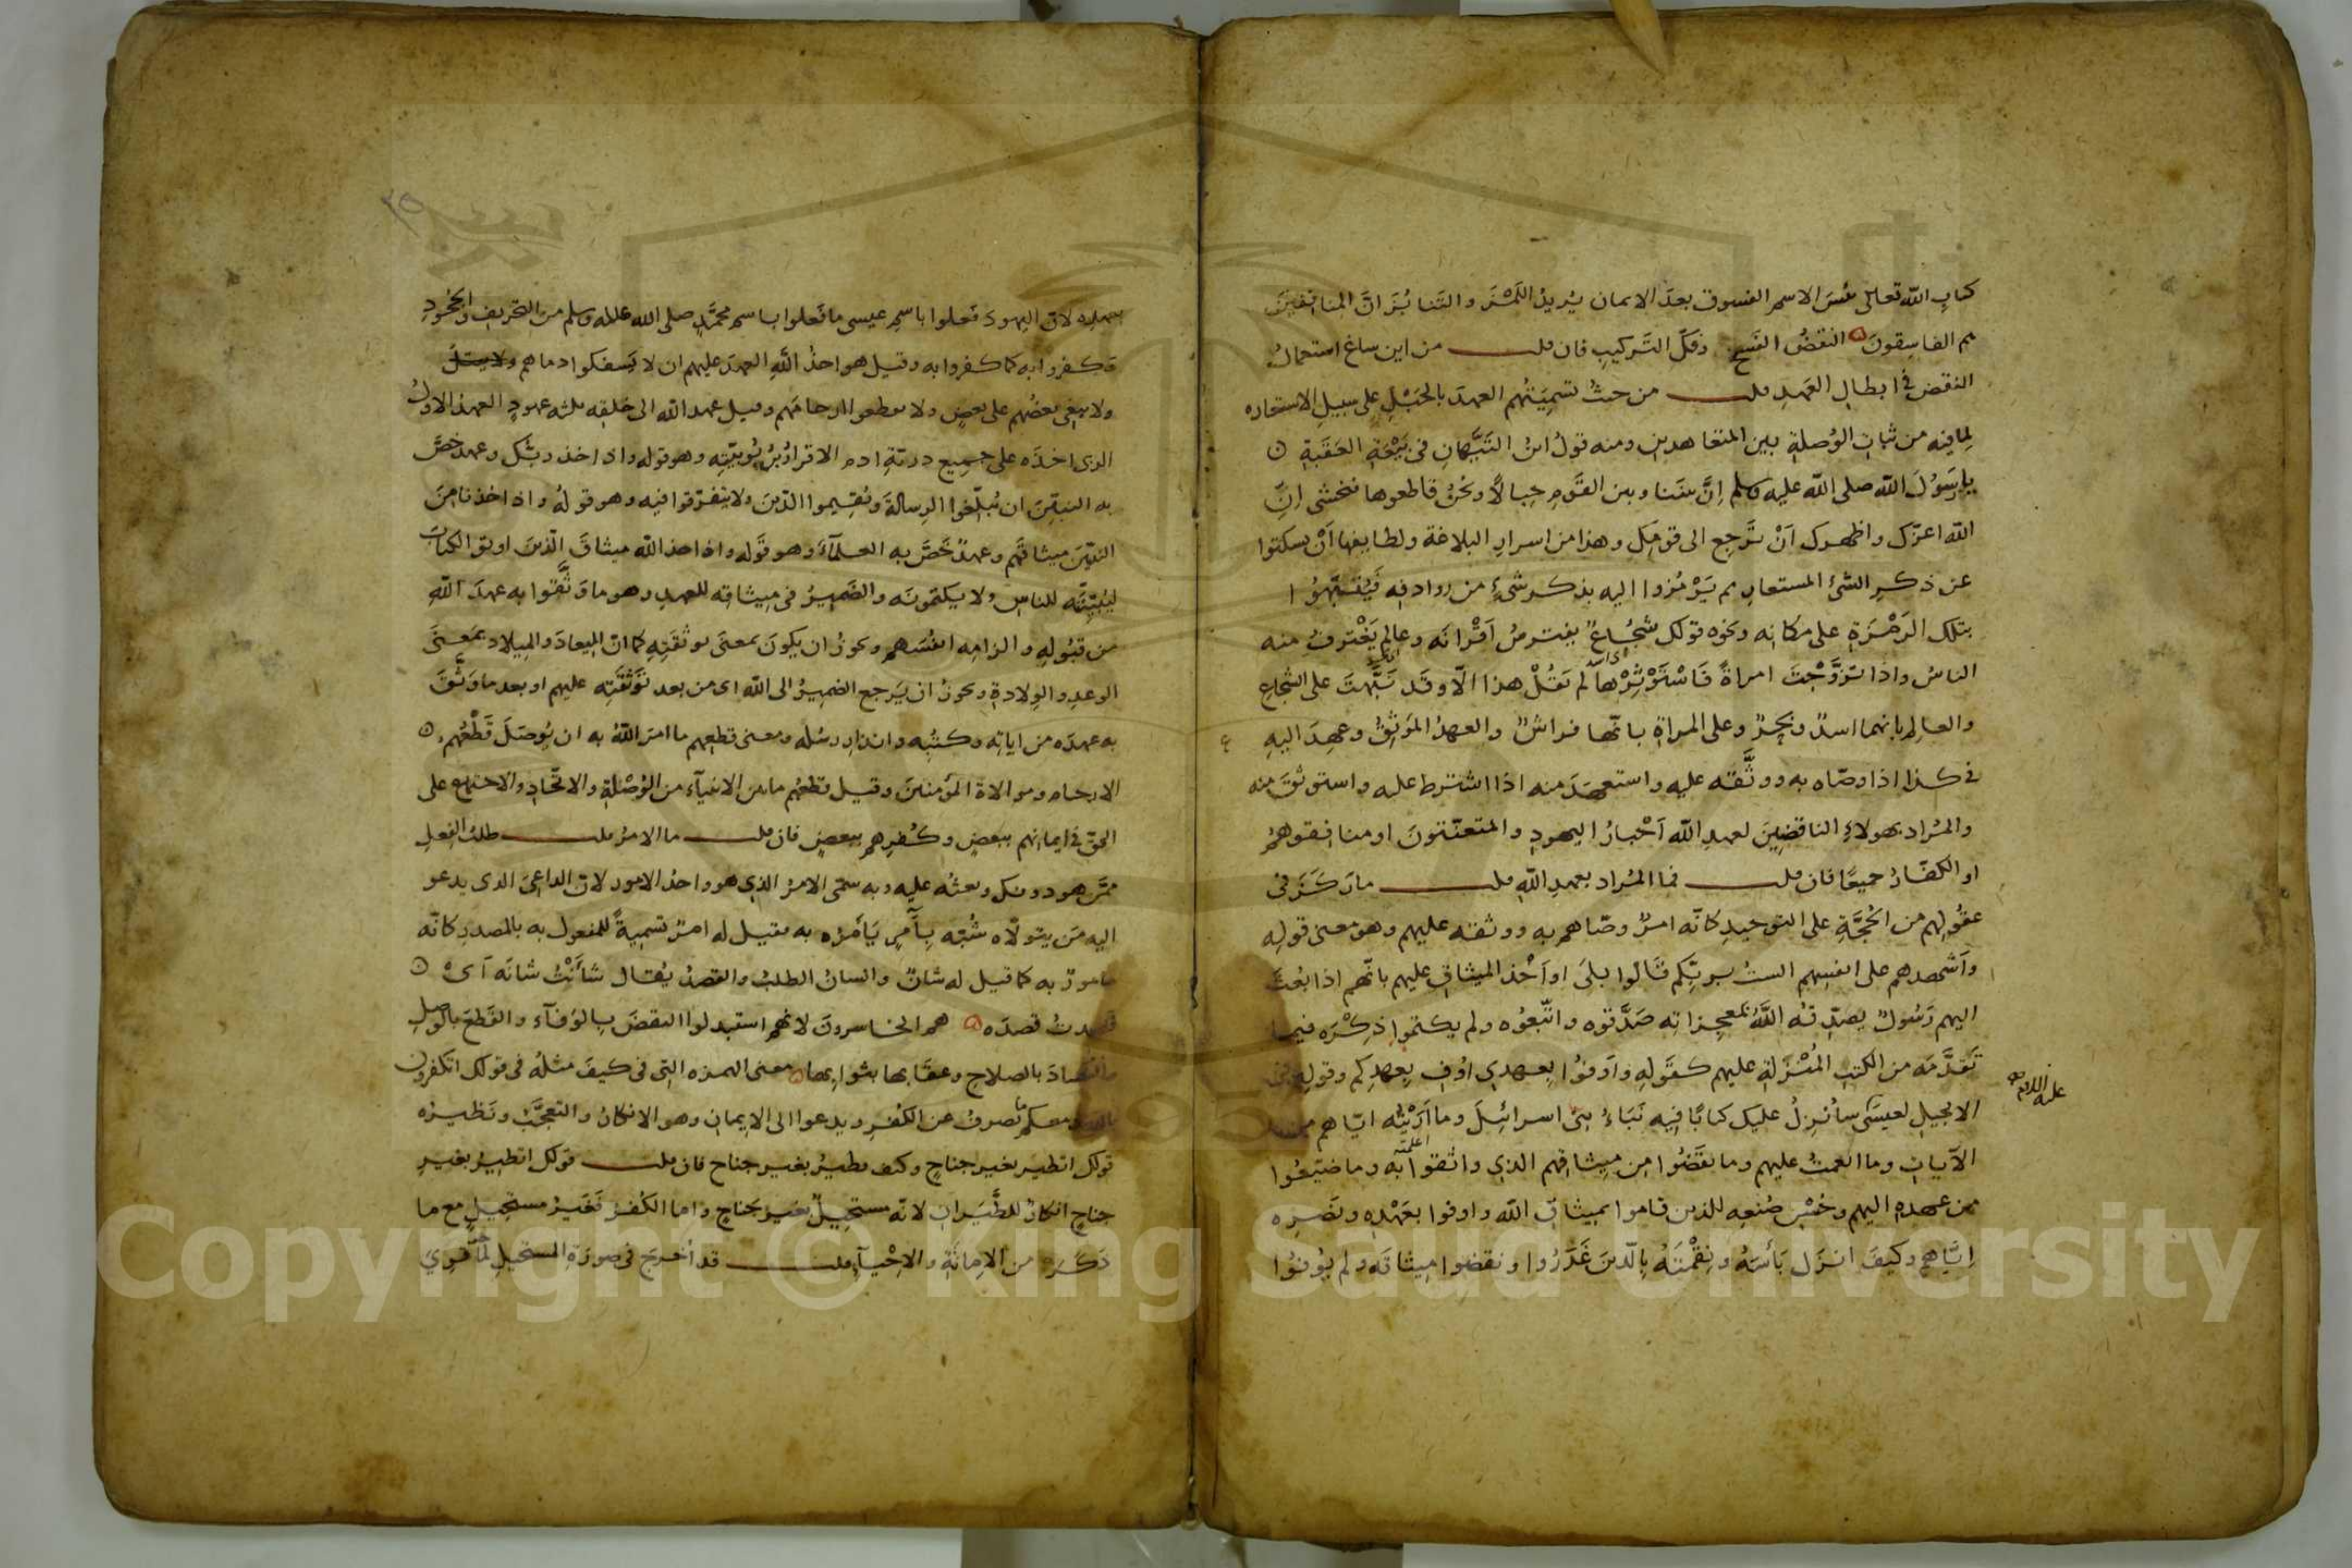 كتابِ الله تعالى بئسَ الاسم الفسوق بعدَ الايمان يُريدُ اللَّمْزَ والتَنابُزَ انَّ المنافقينَ
هم الفاسِقونَ النقضُ الفَسخ وفكّ التَركيبِ فان قلت من اين ساغ استعمالُ
النقض في ابطالِ العَهدِ قلت من حيثُ تسمِيَتُهم العهدَ بالحَبْلِ على سبيل الاستعاره
لِما فيه من ثباتِ الوُصلةِ بين المتعاهدين ومنه قولُ ابن التَيَّهانِ في بَيْعَةِ العَقَبَةِ
يا رسُولَ الله صلى الله عليه وسلم إنَّ بيننا وبين القَومِ حِبالًا ونحنُ قاطعوها فنخشى انِ
الله اعزّك واظهرك اَنْ تَرجِع الى قومِكَ وهذا من اسرارِ البلاغة ولطايفها اَنْ يسكتوا
عن ذكرِ الشئ المستعارِ ثم يَرْمُزوا اليه بذكر شئٍ من روادفِه فَيُنَبِّهُوا
بتلك الرَمْزَةِ على مكانِه ونحوه قولك شجُاعٌ يفترسُ اَقْرانَه وعالم يَغْترفُ منه
الناسُ واذا تزوَّجْتَ امراةً فَاسْتَوْثِرْها لم تقُلْ هذا الّا وقَد نَبَّهتَ على الشجاعِ
والعالِم بانهما اسدٌ وبحرٌ وعلى المراةِ بانّها فراشٌ والعهدُ المَوثِقُ وعهِدَ اليهِ
في كذا اذا وصّاه به ووثَّقه عليه واستعهَدَ منه اذا اشترط عليه واستوثقَ منه
والمُراد بهولاءِ الناقضِينَ لعهدِ الله اَحْبارُ اليهودِ والمتعنّتونَ او منافقوهمُ
او الكفّارُ جميعًا فان قلت فما المُراد بعهدِ اللهِ قلت ما رَكَزَ في
عقُولِهم من الحُجَّةِ على التوحيدِ كانّه امرٌ وصّاهم به ووثقه عليهم وهو معنى قولِهِ
واَشهدهم على انفسِهم الستُ بربّكم قَالوا بلَى او اَخْذ الميثاقِ عليهم بانّهم اذا بُعثَ
اليهم رَسُولٌ يصدّقُه اللهُ بمعجزاتِه صَدَّقوه واتّبعُوه ولم يكتموا ذِكْرَه فيما
تَقدَّمَه من الكتبِ المُنْزَلةِ عليهم كقَولِهِ واَوفُوا بِعهدِي اوُفِ بِعهدِكم وقولِهِ في
الانجيلِ لعيسَى سأُنزِلُ عليك كتابًا فِيه نَبَاءُ بنِي اسرائيلَ وما اَرَيْتُه ايّاهم من
عليه السلام صح
الآياتِ وما انعمتُ عليهم وما نقَضُوا من ميثاقِهم الذي واثقوا به وما ضيّعُوا
من عهدِه اليهم وحُسْنِ صُنعِه للذين قاموا بميثاقِ الله واوفوا بعَهْدِه ونَصْرِه
اِيّاهم وكيفَ انزَل بَأْسَهُ ونِقْمَتَهُ بالّذينَ غَدَرُوا ونقضوا مِيثاقَه ولم يُوفُوا
بعهدِه لانّ اليهودَ فعلوا باسمِ عيسى ما فَعلوا باسم محمّدٍ صلى الله عليه وسلم من التحريفِ والجُحُودِ
وكفروا به كما كفروا به وقيل هو اخذُ اللهِ العهدَ عليهم ان لا يَسفكوا دماهم
ولا يبغِي بعضُهم على بعضٍ ولا يقطعوا ارحامَهم وقيل عهد الله الى خلقِه ثلثه عهودٍ العهدُ الاولُ
الذي اخذَه على جمِيع ذريّةِ ادم الاقرارُ برُبُوبيّتِه وهو قوله واذ اخذ ربّك وعهد خصَّ
به النبيّينَ ان يُبلّغوا الرِسالةَ ويُقِيموا الدّينَ ولا يتفرّقوا فيه وهو قولهُ واذ اخذنا مِنَ
النبيّينَ ميثاقَهم وعهدٌ خَصَّ به العلمآءَ وهو قَوله واذ اخذ الله ميثاقَ الّذينَ اوتوا الكتابَ
ليُبيّنُنَّه للناسِ ولا يكتمُونَه والضَمِيرُ في ميثاقِه للعهدِ وهو ما وَثَّقوا به عهدَ اللهِ
من قبُولِهِ والزامِه انفُسَهم ويجوزُ ان يكونَ بمعنَى توثقَتِهِ كما انّ المِيعادَ والمِيلاد بمَعنَى
الوعدِ والوِلادةِ ويجوزُ ان يَرجع الضميرُ الى الله اى من بعد تَوَثُقَتِه عليهم او بعد ما وَثَّقَ
به عهدَه من اياتِه وكتُبِه وانذارِ رسُله ومعنى قطعِهم ما امرَ اللهُ به ان يُوصَلَ قَطْعُهم
الارحام وموالاة المؤمنينَ وقيل قطعُهم ما بين الانبيآء من الوُصْلةِ والاتّحادِ والاجتماعِ على
الحقّ في ايمانِهم ببعضٍ وكُفرِهم ببعضٍ فان قلت ما الامرُ قلت طلبُ الفِعلِ
ممَّن هو دونك وبعثُه عليه وبه سمّى الامرُ الذي هو واحدُ الامور لانّ الداعِيَ الذي يدعو
اليه مَن يتولّاه شُبّه بِآمِرٍ يَأمرُه به فقيل له امرٌ تسميةً للمفعولِ به بالمصدرِ كانّه
مامورٌ به كما قيل له شانٌ والشانُ الطلبُ والقصدُ يُقال شأَنْتُ شانَه اَىْ
قصدتُ قصدَه هم الخاسرونَ لانهم استبدلوا النقضَ بِالوَفآءِ والقَطعَ بالوصلِ
والفَسادَ بالصلاحِ وعقابها بثوابِها معنى الهمزه التى في كيفَ مثلُه في قولك اتكفرون
بالله ومعكم ما يصرفُ عن الكُفرِ ويدعوا الى الاِيمانِ وهو الانكارُ والتعجّبُ ونَظيرُه
قولك اتطيرُ بغيرِ جناحٍ وكيف تطيرُ بغيرِ جناحٍ فان قلت قولك اتطيرُ بغيرِ
جناحٍ انكارٌ للطَّيَرانِ لانّه مستحِيلٌ بغيرِ جَناحٍ واما الكُفرُ فَغيرُ مستحِيلٍ مع ما
ذَكَرَه من الاِماتَةِ والاِحْيآءِ قلت قد اُخرِجَ في صُورَةِ المستحيلِ لما قوِيَ